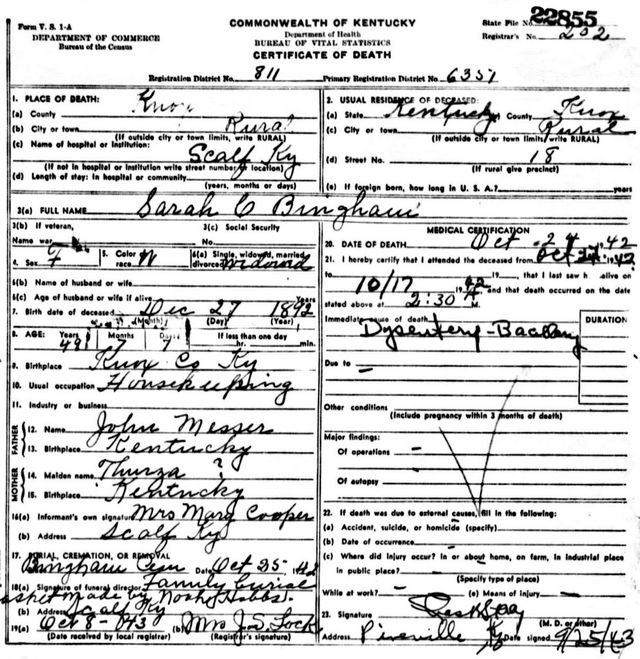 Form V. S. 1-A
DEPARTMENT OF COMMERCE
Bureau of the Census
COMMONWEALTH OF KENTUCKY
Department of Health
BUREAU OF VITAL STATISTICS
CERTIFICATE OF DEATH
State File No. 22855
Registrar's No. 202
Registration District No. 811 Primary Registration District No. 6351
1. PLACE OF DEATH:
(a) County Knox
(b) City or town Rural
(If outside city or town limits, write RURAL)
(c) Name of hospital or institution:
Scalf Ky
(If not in hospital or institution write street number or location)
(d) Length of stay: In hospital or community
(years, months or days)
2. USUAL RESIDENCE OF DECEASED:
(a) State Kentucky County Knox
(c) City or town Rural
(If outside city or town limits write RURAL)
(d) Street No. 18
(If rural give precinct)
(e) If foreign born, how long in U. S. A.?
3(a) FULL NAME Sarah C Bingham
3(b) If veteran,
Name war
3(c) Social Security
No.
4. Sex F 5. Color or race W 6(a) Single, widowed, married, divorced widowed
6(b) Name of husband or wife
6(c) Age of husband or wife if alive Years
7. Birth date of deceased Dec 27 1892
(Month) (Day) (Year)
8. AGE: Years Months Days If less than one day
49 hr. min.
9. Birthplace Knox Co Ky
10. Usual occupation Housekeeping
11. Industry or business
FATHER
12. Name John Messer
13. Birthplace Kentucky
MOTHER
14. Maiden name Thurza ?
15. Birthplace Kentucky
16(a) Informant's own signature Mrs Mary Cooper
(b) Address Scalf Ky
17. BURIAL, CREMATION, OR REMOVAL
Bingham Cem Date Oct 25 - 42
18(a) Signature of funeral director Family burial
made by Noah Hobbs.
(b) Address Scalf Ky
19(a) Oct 8 - 43 (b) Mrs J. S. Lock
(Date received by local registrar) (Registrar's signature)
MEDICAL CERTIFICATION
20. DATE OF DEATH Oct 24 1942
21. I hereby certify that I attended the deceased from Oct 24 1942
10/17 1942, that I last saw h alive on
19, and that death occurred on the date
stated above at 2:30 A M.
Immediate cause of death DURATION
Dysentery - Bacillary
Due to
Other conditions
(Include pregnancy within 3 months of death)
Major findings:
Of operations
Of autopsy
22. If death was due to external causes, fill in the following:
(a) Accident, suicide, or homicide (specify)
(b) Date of occurrence
(c) Where did injury occur? In or about home, on farm, in industrial place
in public place?
(Specify type of place)
While at work? (e) Means of injury
23. Signature
(M. D. or other)
Address Pineville Ky Date signed 9/25/43